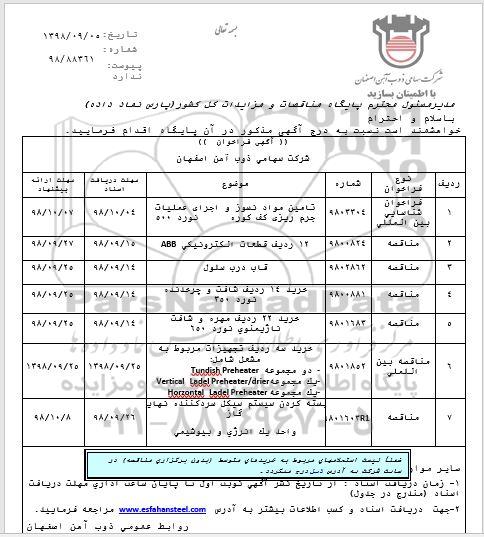 بسمه تعالی
تاریخ: ۱۳۹۸/۰۹/۰۵
شماره: ۹۸/۸۸۳۶۱
پیوست: ندارد
شرکت سهامی ذوب آهن اصفهان
با اطمینان بسازید
مدیرمسئول محترم پایگاه مناقصات و مزایدات کل کشور(پارس نماد داده)
باسلام و احترام
خواهشمند است نسبت به درج آگهی مذکور در آن پایگاه اقدام فرمایید.
(( آگهی فراخوان ))
شرکت سهامی ذوب آهن اصفهان
ردیف نوع فراخوان شماره موضوع مهلت دریافت اسناد مهلت ارائه پیشنهاد
۱ فراخوان شناسایی بین المللی ۹۸۰۳۳۰۴ تامین مواد نسوز و اجرای عملیات جرم ریزی کف کوره نورد ۵۰۰ ۹۸/۱۰/۰۴ ۹۸/۱۰/۰۷
۲ مناقصه ۹۸۰۰۸۲۴ ۱۲ ردیف قطعات الکترونیکی ABB ۹۸/۰۹/۱۵ ۹۸/۰۹/۲۷
۳ مناقصه ۹۸۰۲۸۶۲ قاب درب سلول ۹۸/۰۹/۱۴ ۹۸/۰۹/۲۵
۴ مناقصه ۹۸۰۰۸۸۱ خرید ۱۴ ردیف شافت و چرخدنده نورد ۳۵۰ ۹۸/۰۹/۱۴ ۹۸/۰۹/۲۵
۵ مناقصه ۹۸۰۱۶۸۳ خرید ۲۲ ردیف مهره و شافت ناژیمنوی نورد ۶۵۰ ۹۸/۰۹/۱۴ ۹۸/۰۹/۲۵
۶ مناقصه بین المللی ۹۸۰۱۸۵۲ خرید سه ردیف تجهیزات مربوط به مشعل شامل: ۱۳۹۸/۰۹/۲۵ ۱۳۹۸/۰۹/۲۵
- دو مجموعه Tundish Preheater
-یک مجموعه Vertical Ladel Preheater/drier
-یک مجموعه Horzontal Ladel Preheater
۷ مناقصه ۹۸۰۱۶۰۳R1 بسته کردن سیستم سیکل سردکننده نهایی گاز ۹۸/۰۹/۲۶ ۹۸/۱۰/۸
واحد یک انرژی و بیوشیمی
ضمناً لیست استعلامهای مربوط به خریدهای متوسط (بدون برگزاری مناقصه) در سایت شرکت به آدرس ذیل درج میگردد .
سایر موارد
۱- زمان دریافت اسناد : از تاریخ نشر آگهی نوبت اول تا پایان ساعت اداری مهلت دریافت اسناد (مندرج در جدول)
۲-جهت دریافت اسناد و کسب اطلاعات بیشتر به آدرس www.esfahansteel.com مراجعه فرمایید.
روابط عمومی ذوب آهن اصفهان
ParsNamadData